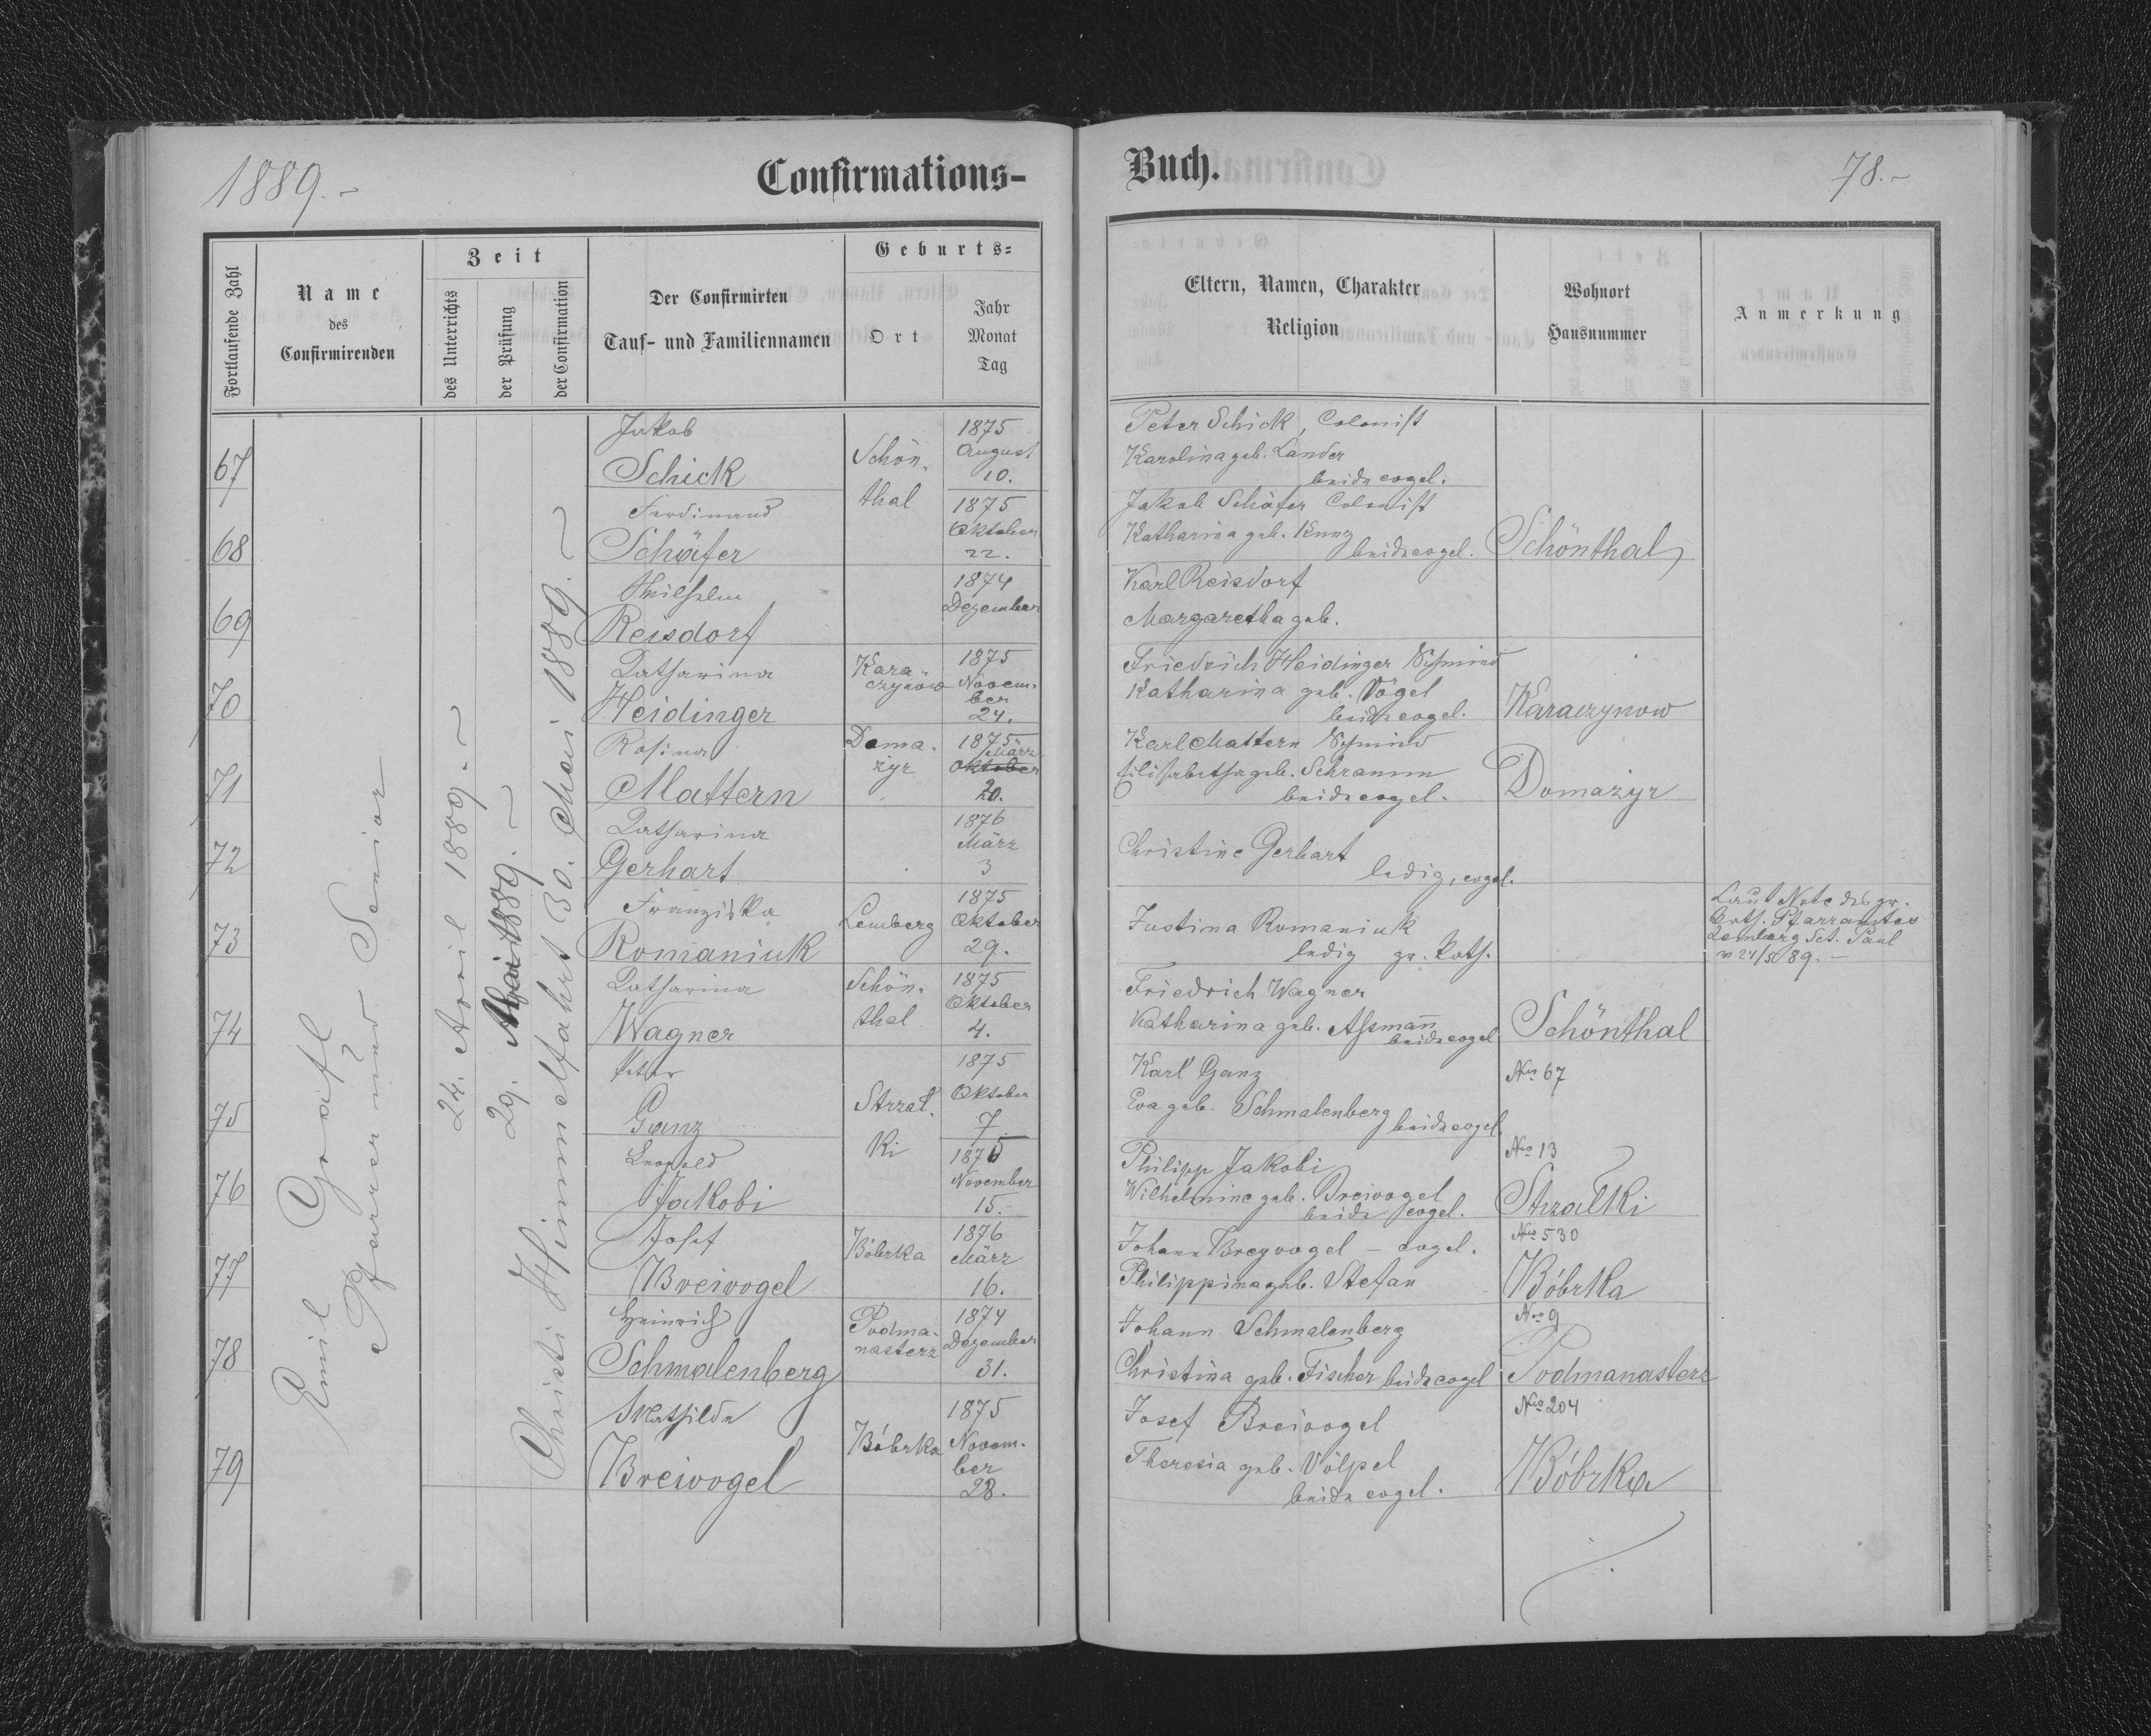 1889.-
Confirmations-
Fortlaufende Zahl
Name
des
Confirmirenden
Zeit
des Unterrichts
der Prüfung
der Confirmation
Der Confirmirten
Tauf- und Familiennamen
Geburts-
Ort
Jahr
Monat
Tag
Emil Graefl
Pfarrer und Senior
24. April 1889.-
29. Mai 1889.-
Christi Himmelfahrt 30. Mai 1889.-
67
Jakob
Schick
Schön-
thal
1875
August
10.
68
Ferdinand
Schäfer
1875
Oktober
22.
69
Wilhelm
Reisdorf
1874
Dezember
70
Katharina
Heidinger
Kara-
czynow
1875
Novem-
ber
24.
71
Rosina
Mattern
Doma-
zyr
1875
März
Oktober
20.
72
Katharina
Gerhart
1876
März
3
73
Franziska
Romaniuk
Lemberg
1875
Oktober
29.
74
Katharina
Wagner
Schön-
thal
1875
Oktober
4.
75
Peter
Ganz
Strzał-
ki
1875
Oktober
7
76
Leopold
Jakobi
1875
November
15.
77
Josef
Breivogel
Bóbrka
1876
März
16.
78
Heinrich
Schmalenberg
Podma-
nasterz
1874
Dezember
31.
79
Mathilde
Breivogel
Bóbrka
1875
Novem-
ber
28.
Buch.
78.-
Eltern, Namen, Charakter
Religion
Wohnort
Hausnummer
Anmerkung
Peter Schick, Colonist
Karolina geb. Lander
beide evgel.
Jakob Schäfer Colonist
Katharina geb. Kunz
beide evgel.
Schönthal
Karl Reisdorf
Margaretha geb.
Friedrich Heidinger Schmied
Katharina geb. Vögel
beide evgel.
Karaczynow
Karl Mattern Schmied
Elisabetha geb. Schramm
beide evgel.
Domazyr
Christine Gerhart
ledig, evgel.
Justina Romaniuk
ledig gr. kath.
Laut Note des gr.
kath. Pfarramtes
Lemberg Sct. Paul
v 24/5 89.-
Friedrich Wagner
Katharina geb. Aßmann
beide evgel
Schönthal
Karl Ganz
Eva geb. Schmalenberg beide evgel
Nro 67
Philipp Jakobi
Wilhelmine geb. Breivogel
beide evgel.
Nro 13
Strzałki
Johann Breyvogel - evgel.
Philippina geb. Stefan
Nro 530
Bóbrka
Johann Schmalenberg
Christina geb. Fischer beide evgel
Nro 9
Podmanasterz
Josef Breivogel
Theresia geb. Völpel
beide evgel.
Nro 204
Bóbrka